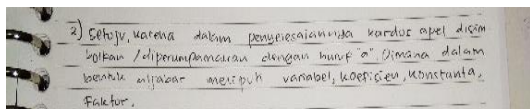 2) Setuju, karena dalam penyelesaiannya kardus apel disim
bolkan /diperumpamakan dengan huruf "a". Dimana dalam
bentuk aljabar meliputi variabel, koefisien, konstanta,
Faktor.